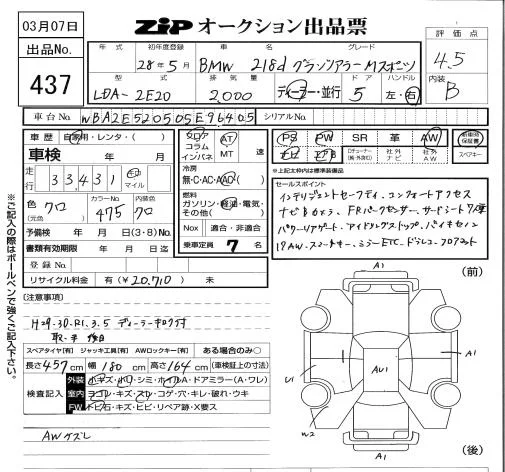 03月07日
ZIP オークション出品票
評価点
4.5
内装
B
出品No.
437
年式
初年度登録
車名
グレード
28年5月
BMW 218d グランツアラーMスポーツ
型式
排気量
ドア
ハンドル
LDA-2E20
2,000
ディーラー・並行
5
左・右
車台No.
WBA2E520505E96405
シリアルNo.
車歴
自家用・レンタ・( )
車検
年 月
走行
33,431
マイル
色
(元色)
クロ
カラーNo.
475
内装色
クロ
予備検
年 月 日(3・8)No.
書類有効期限
年 月 日迄
登録No.
リサイクル料金
有(¥20,710) 未
フロア
コラム
インパネ
AT
MT
速
冷房
無・C・AC・AAC( )
燃料
ガソリン・軽油・電気・
その他( )
Nox
適合・非適合
乗車定員
7名
PS
PW
SR
革
AW
新車時
保証書
ナビ
エアB
社外
ナビ
社外
AW
スペアキー
*上記太枠内は標準装備品
セールスポイント
インテリジェントセーフティ、コンフォートアクセス
ナビBカメラ、FRパークセンサー、サードシート7人乗
パワーリアゲート、アイドリングストップ
17AW、スマートキー、ミラーETC、ドラレコ、フロアマット
※ご記入の際はボールペンで強くご記入下さい。
(注意事項)
H29.30.R1.3.5 ディーラーキロク付
取・手
スペアタイヤ[有] ジャッキ工具[有] AWロックキー[有] ある場合のみ○
長さ457cm 幅180cm 高さ164cm (車検証上の寸法)
検査記入
外装
小キズ・小ヘコ・シミ・ホイルA・ドアミラー(A・ワレ)
室内
ヨゴレ・キズ・スレ・コゲ・穴・キレ・破れ・ウキ
FW
トビ石・キズ・ヒビ・リペア跡・X要ス
AWケズレ
(前)
A1
A1
U1
AU1
W2
A1
(後)